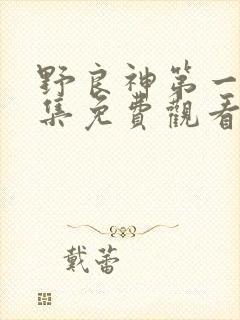 野良神第一
集免費觀看
戴蕾